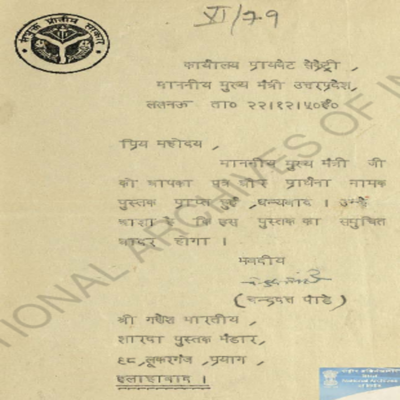 संयुक्त प्रान्तीय सरकार
VI/79
कार्यालय प्रायवेट सेक्रेट्री,
माननीय मुख्य मंत्री उत्तरप्रदेश,
लखनऊ ता० २२।१२।५०ई०
प्रिय महोदय,
माननीय मुख्य मंत्री जी
को आपका पत्र और प्रार्थना नामक
पुस्तक प्राप्त हुई ,धन्यवाद । उन्हें
आशा है कि इस पुस्तक का समुचित
आदर होगा ।
भवदीय
(चन्द्रदत्त पांडे)
श्री गणेश भारतीय,
शारदा पुस्तक भंडार,
६८,लूकरगंज, प्रयाग,
इलाहाबाद ।
NATIONAL ARCHIVES OF IN